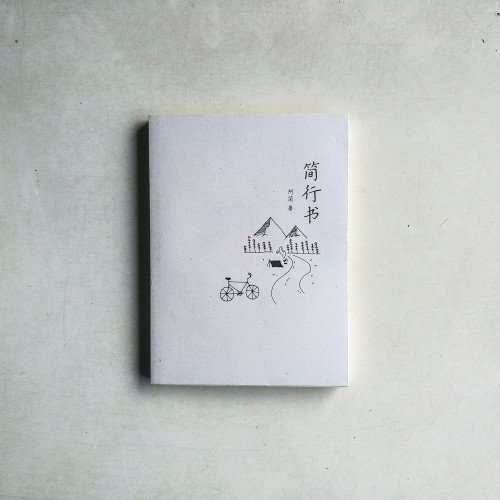 简行书
阿简 著